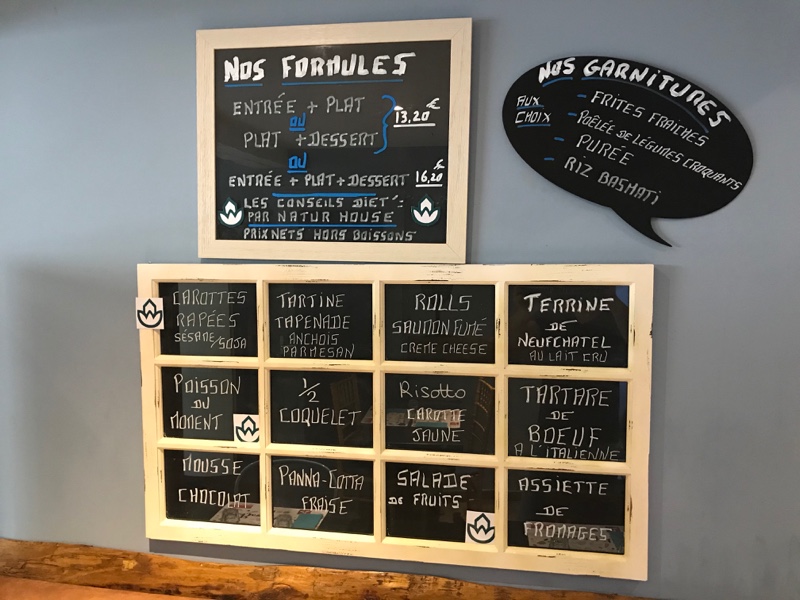 NOS FORMULES
ENTRÉE + PLAT
OU
PLAT + DESSERT
13,20 €
OU
ENTRÉE + PLAT + DESSERT 16,20 €
LES CONSEILS DIÉT':
PAR NATUR HOUSE
PRIX NETS HORS BOISSONS
NOS GARNITURES
AUX CHOIX
- FRITES FRAÎCHES
- POÊLÉE DE LÉGUMES CROQUANTS
- PURÉE
- RIZ BASMATI
CAROTTES
RAPÉES
SÉSAME/SOJA
TARTINE
TAPENADE
ANCHOIS
PARMESAN
ROLLS
SAUMON FUMÉ
CREME CHEESE
TERRINE
DE
NEUFCHATEL
AU LAIT CRU
POISSON
DU
MOMENT
1/2
COQUELET
Risotto
CAROTTE
JAUNE
TARTARE
DE
BOEUF
A L'ITALIENNE
MOUSSE
CHOCOLAT
PANNA-COTTA
FRAISE
SALADE
DE FRUITS
ASSIETTE
DE
FROMAGES